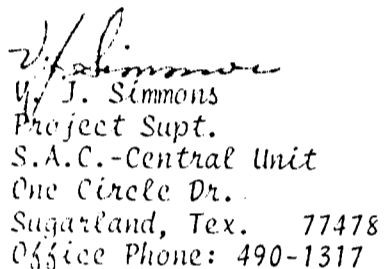 V. J. Simmons
V. J. Simmons
Project Supt.
S.A.C.-Central Unit
One Circle Dr.
Sugarland, Tex. 77478
Office Phone: 490-1317